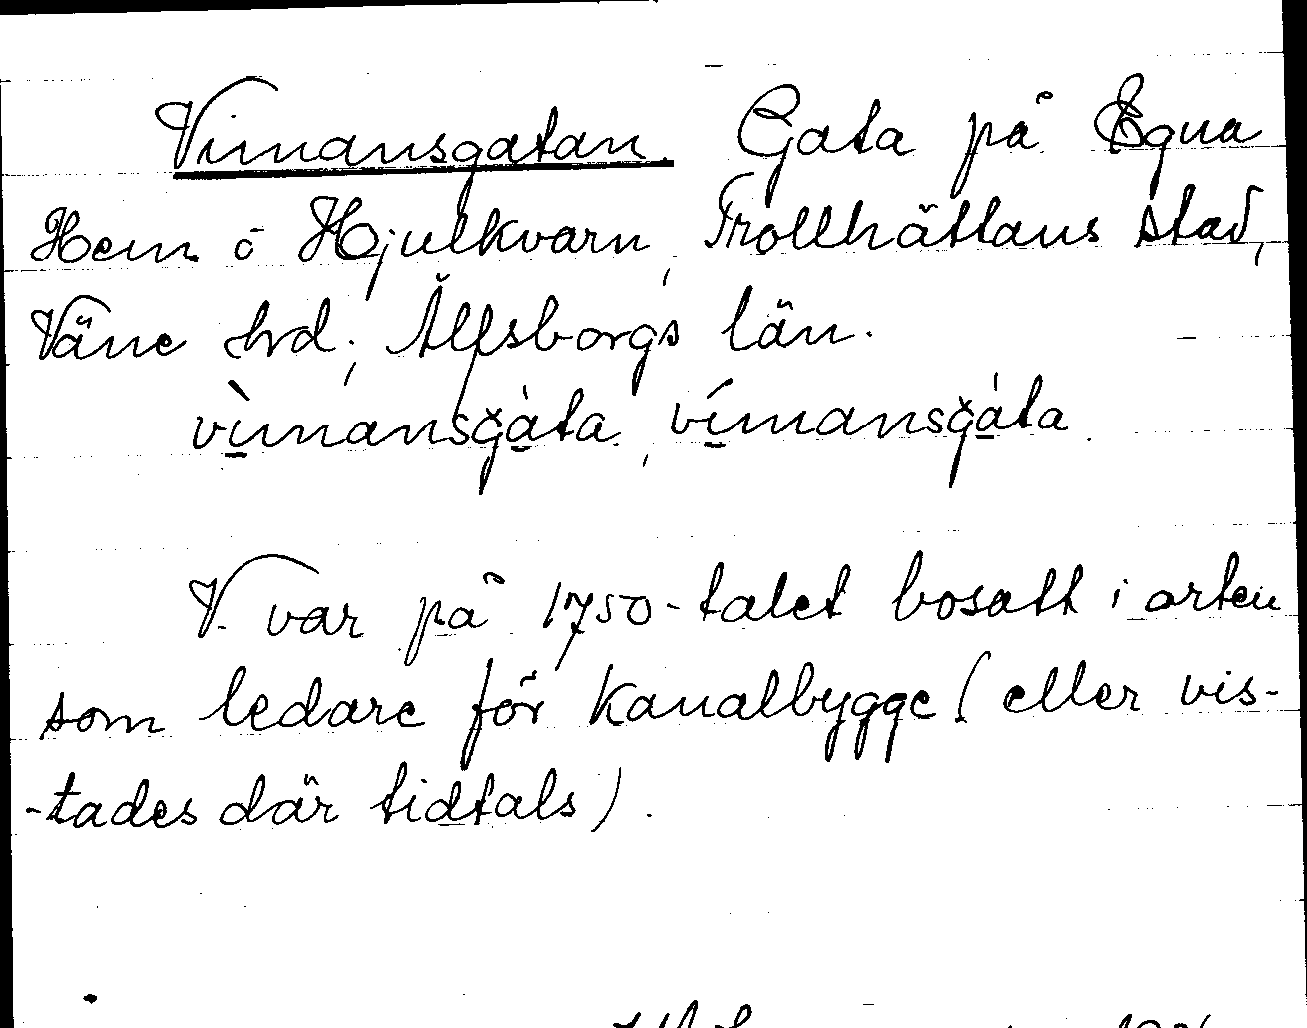 Vimansgatan. Gata på Egna
Hem ö Hjulkvarn, Trollhättans stad,
Väne hrd., Älfsborgs län.
vìmansgàta, vímansgàta.
V. var på 1750-talet bosatt i orten
som ledare för kanalbygge (eller vis-
-tades där tidtals).